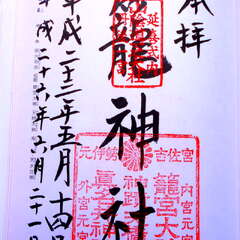 奉拝
延喜式内
籠神社
内宮元宮
籠宮大
元伊勢
外宮元宮
平成二十三年五月十四日
平成二十六年六月二十一日